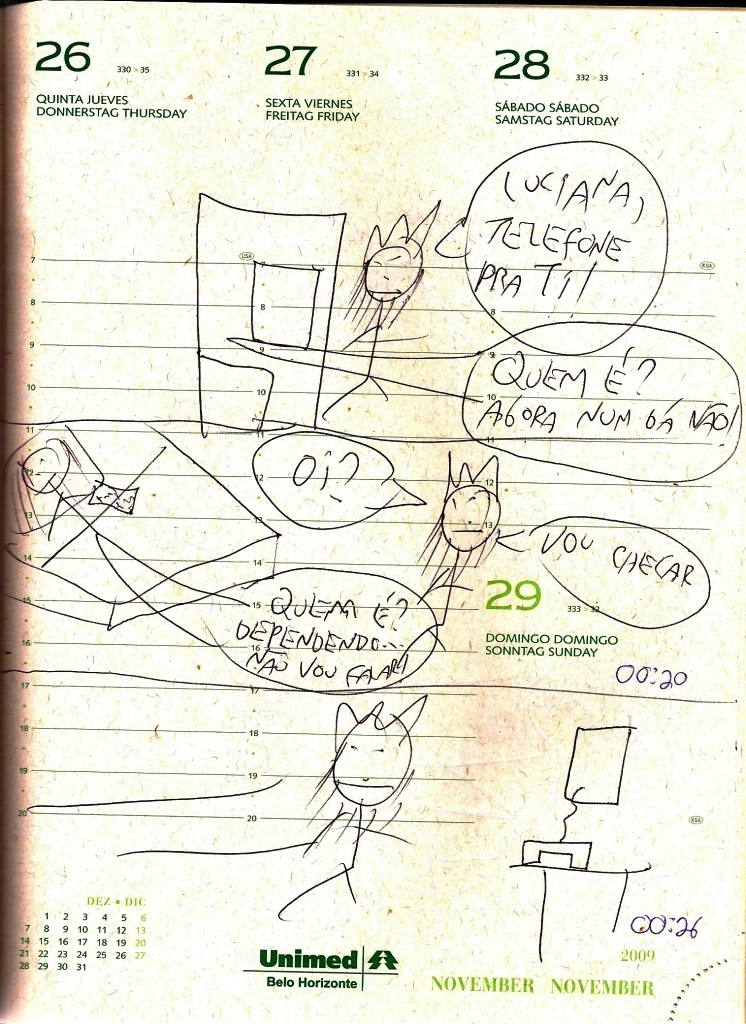 26
330 > 35
QUINTA JUEVES
DONNERSTAG THURSDAY
27
331 > 34
SEXTA VIERNES
FREITAG FRIDAY
28
332 > 33
SÁBADO SÁBADO
SAMSTAG SATURDAY
LUCIANA,
TELEFONE
PRA TI!
QUEM É?
AGORA NUM DÁ NÃO!
OI?
VOU CHECAR
QUEM É?
DEPENDENDO...
NÃO VOU FALAR!
29
333 > 32
DOMINGO DOMINGO
SONNTAG SUNDAY
00:20
7
8
9
10
11
12
13
14
15
16
17
18
19
20
USA
7
8
9
10
11
12
13
14
15
16
17
18
19
20
KSA
8
9
10
11
12
13
KSA
00:26
DEZ • DIC
1 2 3 4 5 6
7 8 9 10 11 12 13
14 15 16 17 18 19 20
21 22 23 24 25 26 27
28 29 30 31
Unimed
Belo Horizonte
2009
NOVEMBER NOVEMBER